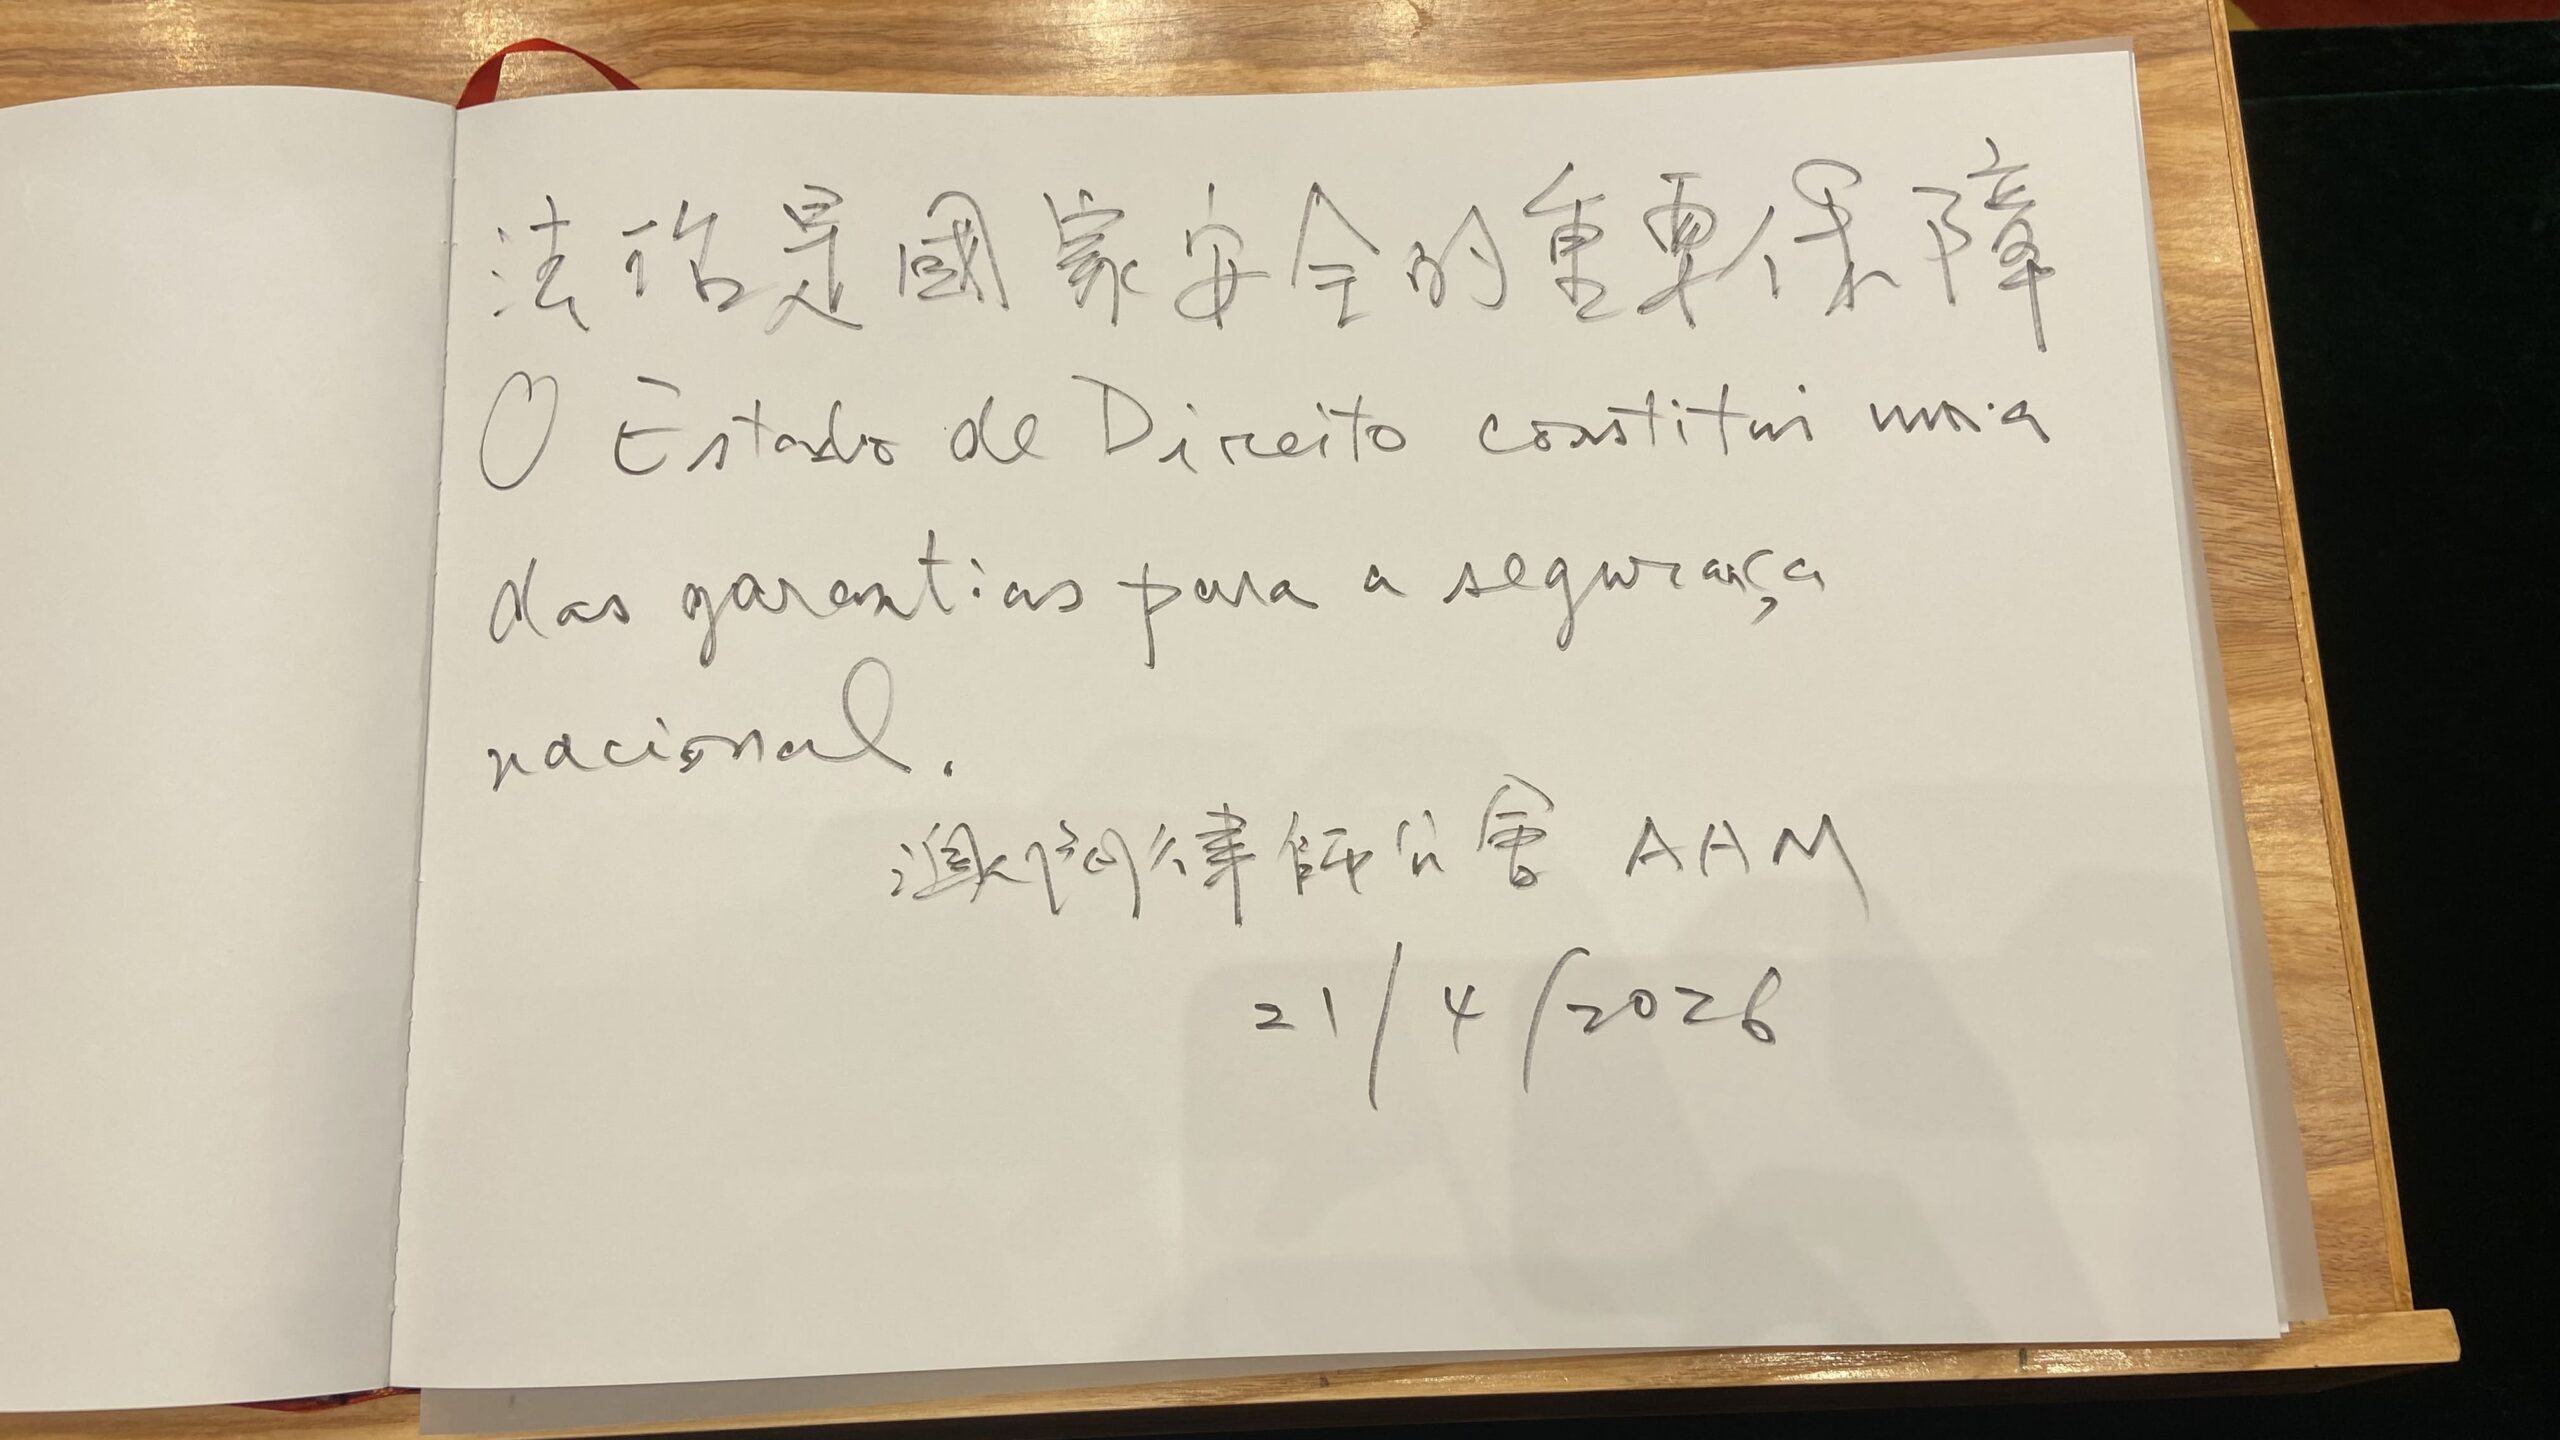 法治是國家安全的重要保障
O Estado de Direito constitui uma
das garantias para a segurança
nacional.
澳門律師公會 AAM
21/4/2026